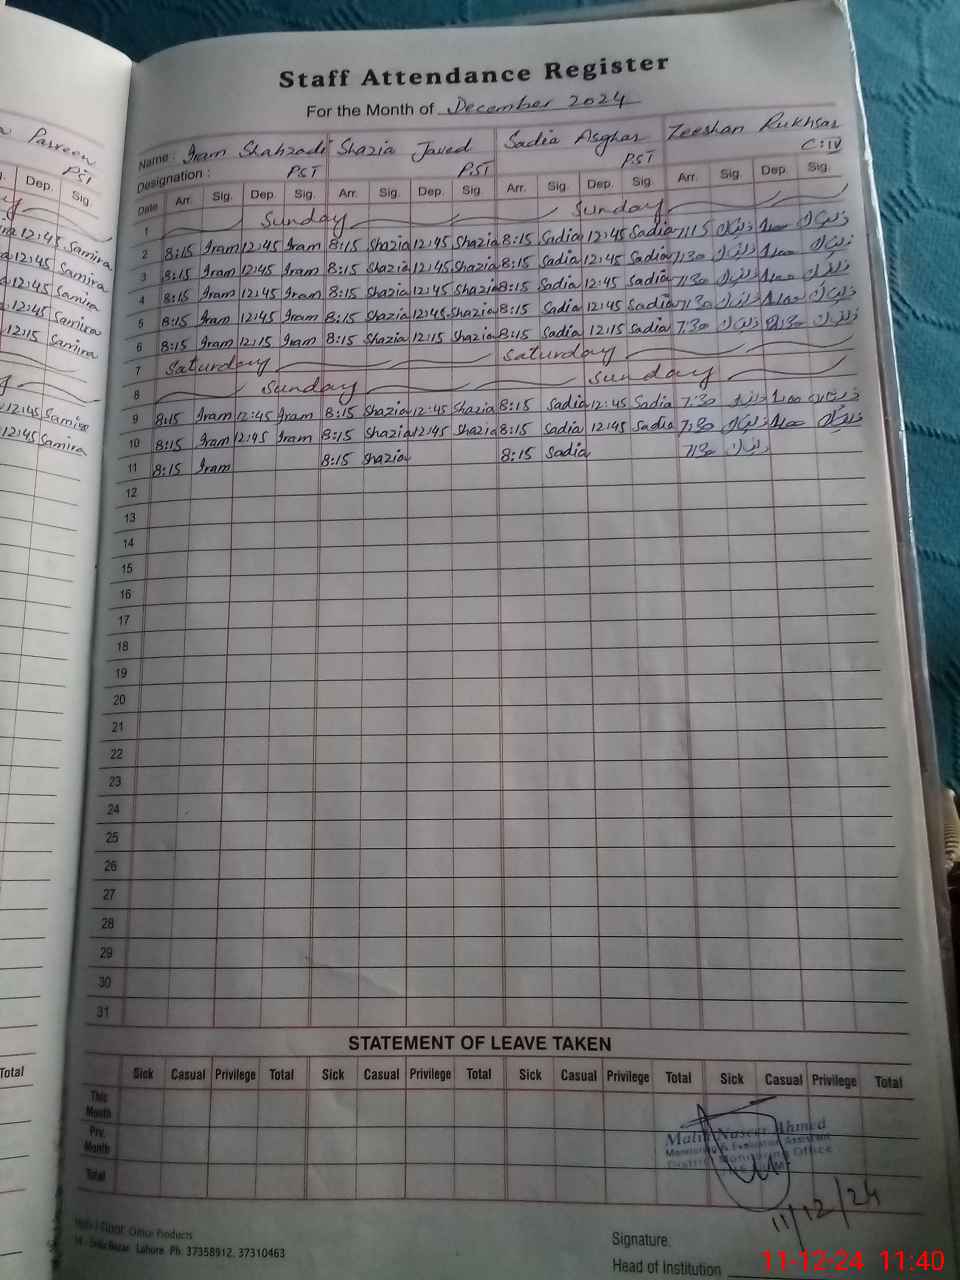 Staff Attendance Register
For the Month of December 2024
Parveen
PST
Dep. Sig.
12:45 Samira
12:45 Samira
12:45 Samira
12:45 Samira
12:15 Samira
12:45 Samira
12:45 Samira
Total
Name: Iram Shahzadi Shazia Javed Sadia Asghar Zeeshan Rukhsar
Designation: PST PST PST C:IV
Date Arr. Sig. Dep. Sig. Arr. Sig. Dep. Sig. Arr. Sig. Dep. Sig. Arr. Sig. Dep. Sig.
1 Sunday Sunday
2 8:15 Iram 12:45 Iram 8:15 Shazia 12:45 Shazia 8:15 Sadia 12:45 Sadia 7:15
3 8:15 Iram 12:45 Iram 8:15 Shazia 12:45 Shazia 8:15 Sadia 12:45 Sadia 7:30
4 8:15 Iram 12:45 Iram 8:15 Shazia 12:45 Shazia 8:15 Sadia 12:45 Sadia 7:30
5 8:15 Iram 12:45 Iram 8:15 Shazia 12:45 Shazia 8:15 Sadia 12:45 Sadia 7:30
6 8:15 Iram 12:15 Iram 8:15 Shazia 12:15 Shazia 8:15 Sadia 12:15 Sadia 7:30
7 Saturday Saturday
8 Sunday Sunday
9 8:15 Iram 12:45 Iram 8:15 Shazia 12:45 Shazia 8:15 Sadia 12:45 Sadia 7:30
10 8:15 Iram 12:45 Iram 8:15 Shazia 12:45 Shazia 8:15 Sadia 12:45 Sadia 7:30
11 8:15 Iram 8:15 Shazia 8:15 Sadia 7:30
12
13
14
15
16
17
18
19
20
21
22
23
24
25
26
27
28
29
30
31
STATEMENT OF LEAVE TAKEN
Sick Casual Privilege Total Sick Casual Privilege Total Sick Casual Privilege Total Sick Casual Privilege Total
This Month
Prv. Month
Total
Malik Naseer Ahmed
Monitoring & Evaluation Assistant
District Monitoring Office
11/12/24
Office Products
Lahore Ph: 37358912, 37310463
Signature:
Head of Institution
11-12-24 11:40